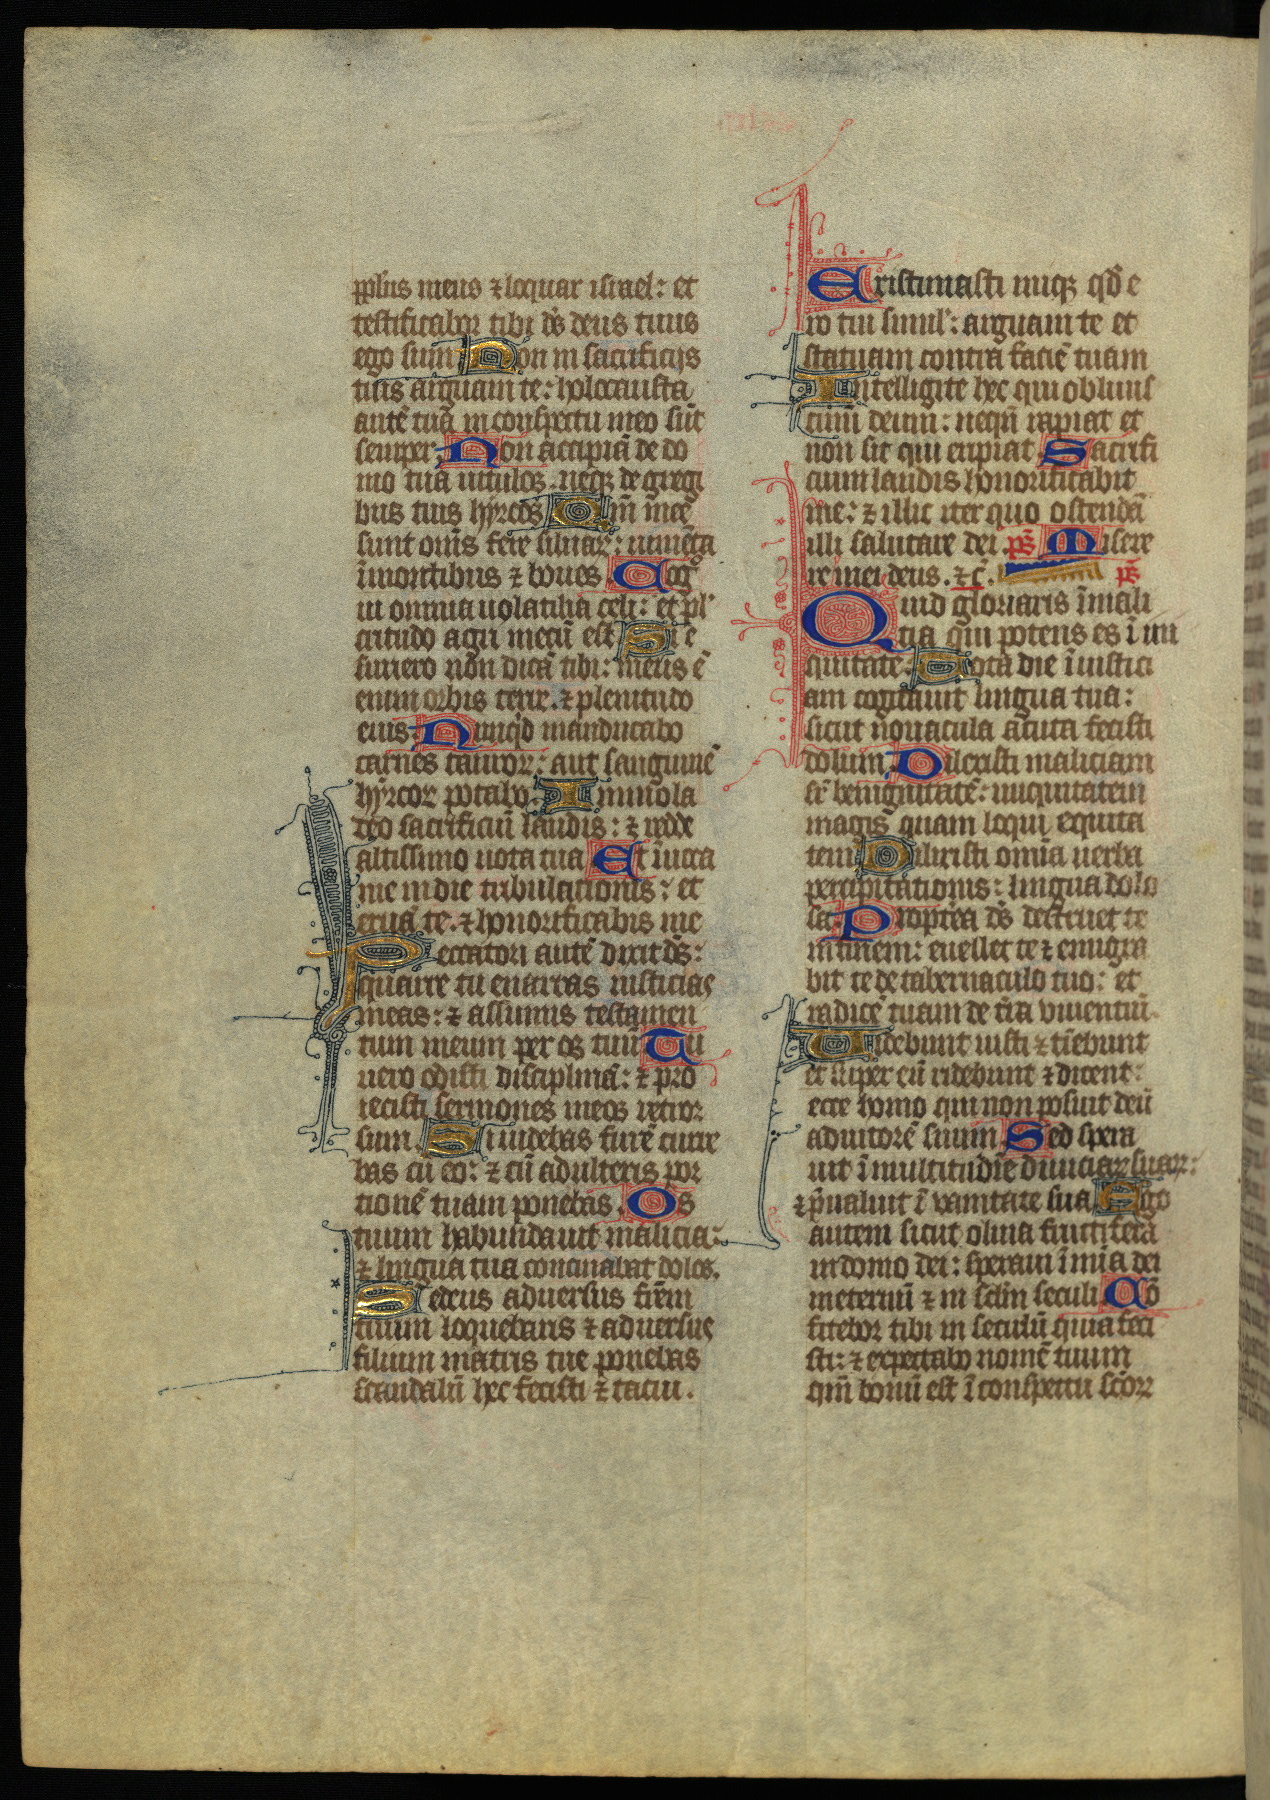 pplus meus ⁊ loquar israel: et
testificabor tibi ds̄ deus tuus
ego sum Non in sacrificijs
tuis arguam te: holocausta
autē tua in conspectu meo sūt
semper. Non accipiā de do
mo tua uitulos. neqȝ de gregi
bus tuis hyrcos Qm̄ mee
sunt om̄s fere siluarꝝ: iumēta
īmontibus ⁊ boues. Cog
ui omnia uolatilia celi: et pl'
critudo agri mecū est Si e
suriero non dicā tibi: meus ē
enim orbis terre. ⁊ plenitudo
eius. Nūquid manducabo
carnes taurorꝝ: aut sanguinē
hyrcorꝝ potabo. Immola
deo sacrificiū laudis: ⁊ redde
altissimo uota tua Et īuoca
me in die tribulationis: et
eruā te. ⁊ honorificabis me
Peccatori autē dixit ds̄:
quare tu enarras iusticias
meas: ⁊ assumis testamen
tum meum per os tuū Tu
uero odisti disciplinā: ⁊ pro
iecisti sermones meos retror
sum. Si uidebas furē curre
bas cū eo: ⁊ cū adulteris por
tionē tuam ponebas. Os
tuum habundauit malicia:
⁊ lingua tua concinabat dolos.
Sedens aduersus frēm
tuum loquebaris ⁊ aduersus
filium matris tue ponebas
scandalū hec fecisti ⁊ tacui.
Existimasti iniqȝ qd̄ e
ro tui simil': arguam te et
statuam contra faciē tuam
Intelligite hec qui obliuis
timi deum: neqn̄ rapiat et
non sit qui eripiat Sacrifi
cium laudis honorificabit
me: ⁊ illic iter quo ostendā
illi salutare dei ps̄ Misere
re mei deus. ⁊c̄. ps̄
Quid gloriaris īmali
tia qui potens es ī ini
quitate Tota die īiustici
am cogitauit lingua tua:
sicut nouacula acuta fecisti
dolum Dilexisti maliciam
sr̄ benignitatē: iniquitatem
magis quam loqui equita
tem Dilexisti om̄ia uerba
precipitationis: lingua dolo
sa. Propterea ds̄ destruet te
in finem: euellet te ⁊ emigra
bit te de tabernaculo tuo: et
radicē tuam de tr̄a uiuentiū.
Uidebunt iusti ⁊ timebunt
et super eū ridebunt ⁊ dicent:
ecce homo qui non posuit deū
adiutorē suum Sed spera
uit ī multitudīe diuiciarꝝ suarꝝ:
⁊ p̄ualuit ī vanitate sua Ego
autem sicut oliua fructifera
in domo dei: speraui ī mīa dei
ineternū ⁊ in sclm̄ seculi Cō
fitebor tibi in seculū quia feci
sti: ⁊ expectabo nomē tuum
qm̄ bonū est ī conspectu sc̄orꝝ